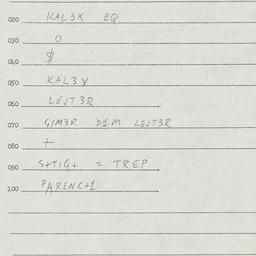 020 KAL3X EQ
030 O
040 $
050 KAL3X
060 LEJT3R
070 GIM3R D1M LEJT3R
080 +
090 S+TIG+ = TREP
100 PARENC+1